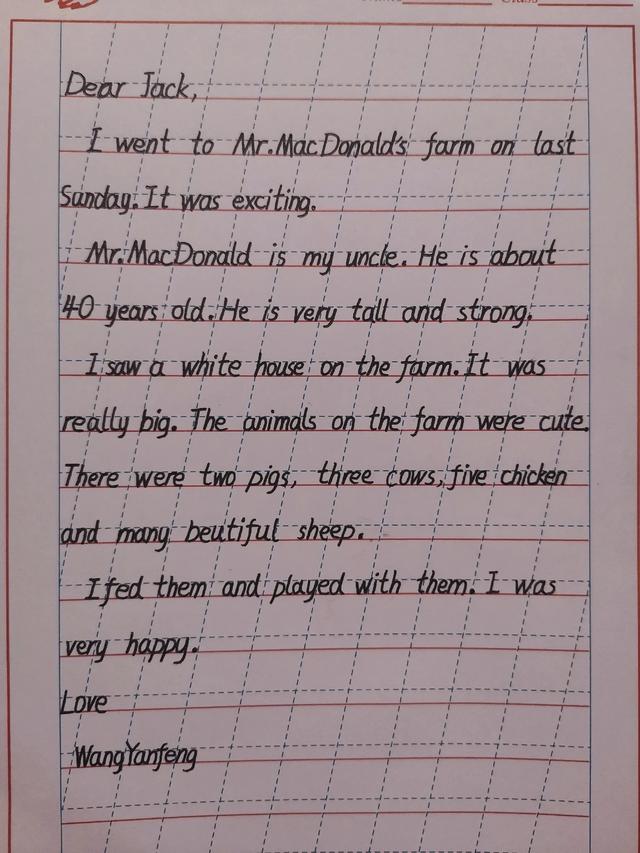 Dear Jack,
I went to Mr.MacDonald's farm on last
Sunday. It was exciting.
Mr.MacDonald is my uncle. He is about
40 years old. He is very tall and strong.
I saw a white house on the farm. It was
really big. The animals on the farm were cute.
There were two pigs, three cows, five chicken
and many beutiful sheep.
I fed them and played with them. I was
very happy.
Love
WangYanfeng